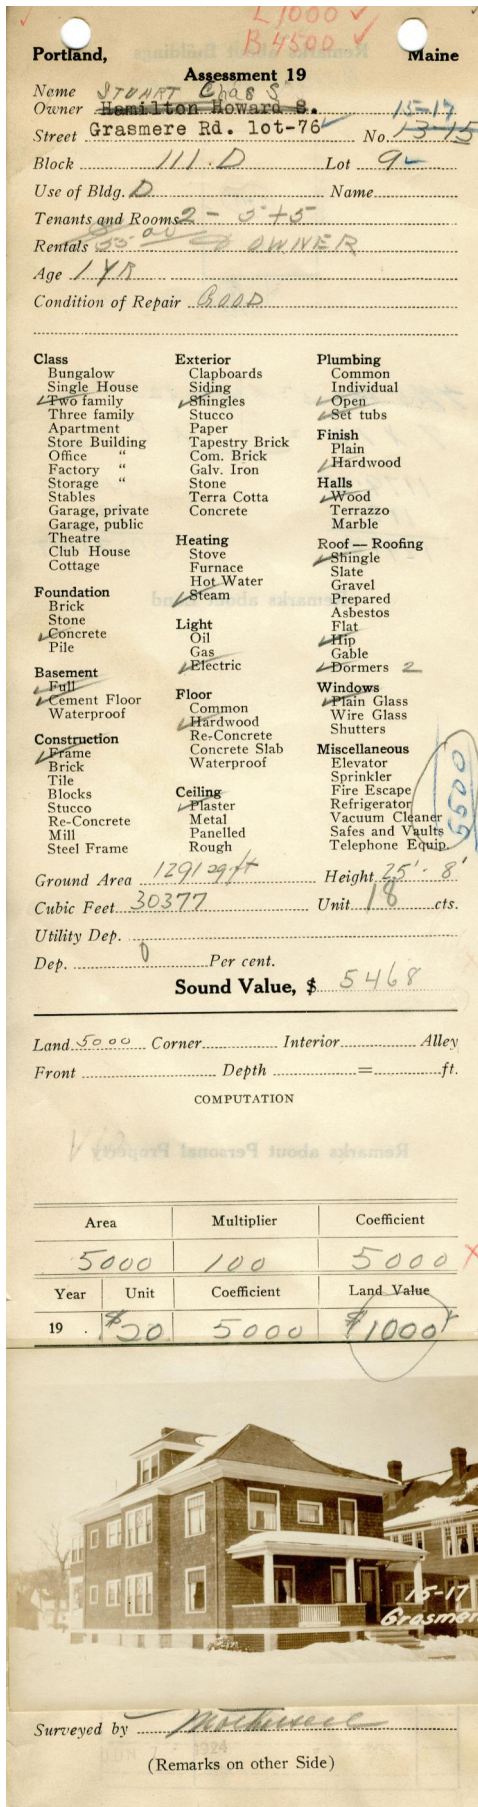 L 1000 ✓
B 4500 ✓
Portland, Maine
Assessment 19
Name STUART Chas S
Owner Hamilton Howard S. 15-17
Street Grasmere Rd. lot-76 No. 13-15
Block 111-D Lot 9
Use of Bldg. D Name
Tenants and Rooms 2 - 5+5
Rentals 55 00 OWNER
Age 1 YR
Condition of Repair GOOD
Class
Bungalow
Single House
✓ Two family
Three family
Apartment
Store Building
Office "
Factory "
Storage "
Stables
Garage, private
Garage, public
Theatre
Club House
Cottage
Foundation
Brick
Stone
✓ Concrete
Pile
Basement
✓ Full
✓ Cement Floor
Waterproof
Construction
✓ Frame
Brick
Tile
Blocks
Stucco
Re-Concrete
Mill
Steel Frame
Exterior
Clapboards
Siding
✓ Shingles
Stucco
Paper
Tapestry Brick
Com. Brick
Galv. Iron
Stone
Terra Cotta
Concrete
Heating
Stove
Furnace
Hot Water
✓ Steam
Light
Oil
Gas
✓ Electric
Floor
Common
✓ Hardwood
Re-Concrete
Concrete Slab
Waterproof
Ceiling
✓ Plaster
Metal
Panelled
Rough
Plumbing
Common
Individual
✓ Open
✓ Set tubs
Finish
Plain
✓ Hardwood
Halls
✓ Wood
Terrazzo
Marble
Roof — Roofing
✓ Shingle
Slate
Gravel
Prepared
Asbestos
Flat
✓ Hip
Gable
✓ Dormers 2
Windows
✓ Plain Glass
Wire Glass
Shutters
Miscellaneous
Elevator
Sprinkler
Fire Escape
Refrigerator
Vacuum Cleaner
Safes and Vaults
Telephone Equip.
5500
Ground Area 1291 sq ft Height 25' - 8'
Cubic Feet 30377 Unit 18 cts.
Utility Dep.
Dep. 0 Per cent.
Sound Value, $ 5468
Land 5000 Corner Interior Alley
Front Depth = ft.
COMPUTATION
Area Multiplier Coefficient
5000 100 5000
Year Unit Coefficient Land Value
19 . $20 5000 $1000
15-17
Grasmer
Surveyed by
(Remarks on other Side)